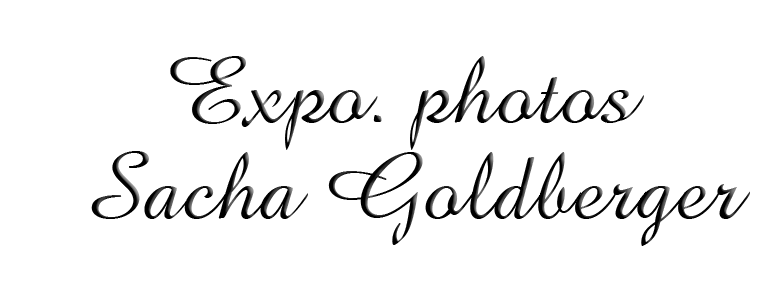 Expo. photos
Sacha Goldberger